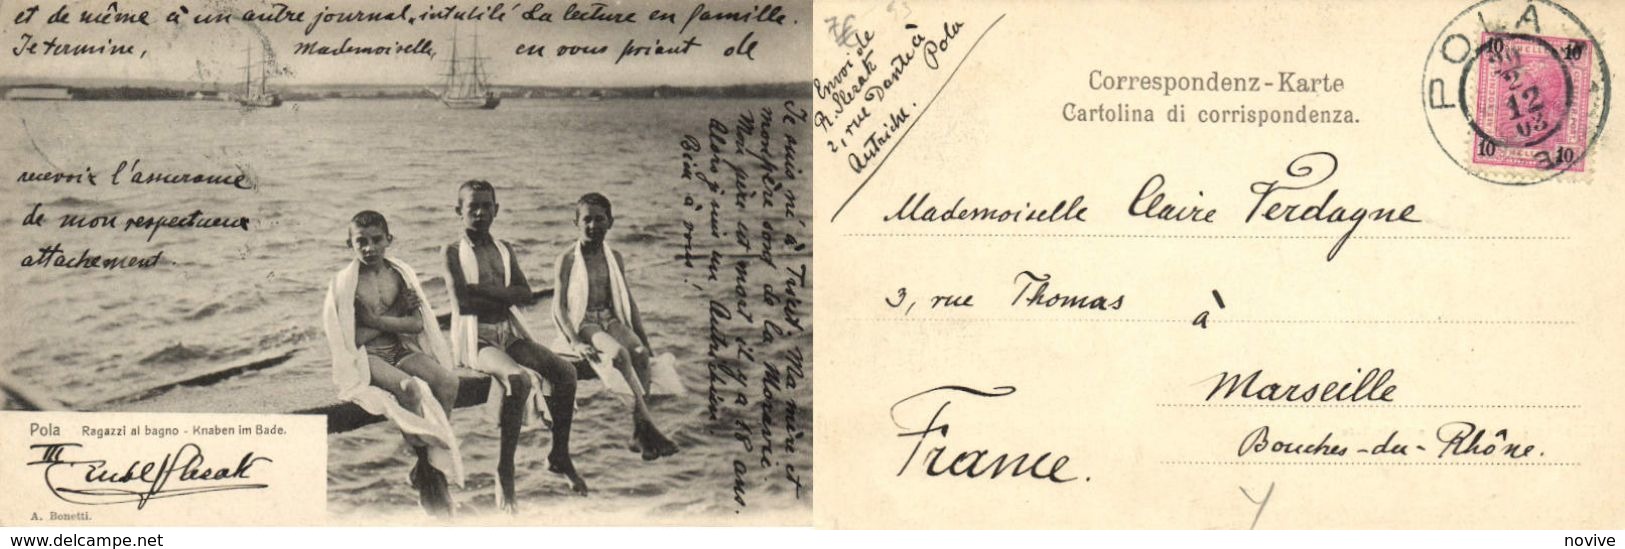 et de même à un autre journal „intutilé La lecture en famille.
Je termine, Mademoiselle, en vous priant de
recevoir l'assurance
de mon respectueux
attachement.
Je suis né à Triest. Ma mère et
mon père sont de la Moravie.
Mon père est mort il y a 18 ans.
Alors je suis un Autrichien.
Bien à vous!
Pola Ragazzi al bagno - Knaben im Bade.
III
A. Bonetti.
7€
93
Envoi de
R.
2, rue Dante à
Pola
Autriche.
Correspondenz-Karte
Cartolina di corrispondenza.
POLA
10 10
12
03
10 10
Mademoiselle Claire Verdagne
3, rue Thomas
à
Marseille
Bouches-du-Rhône.
France.
novive